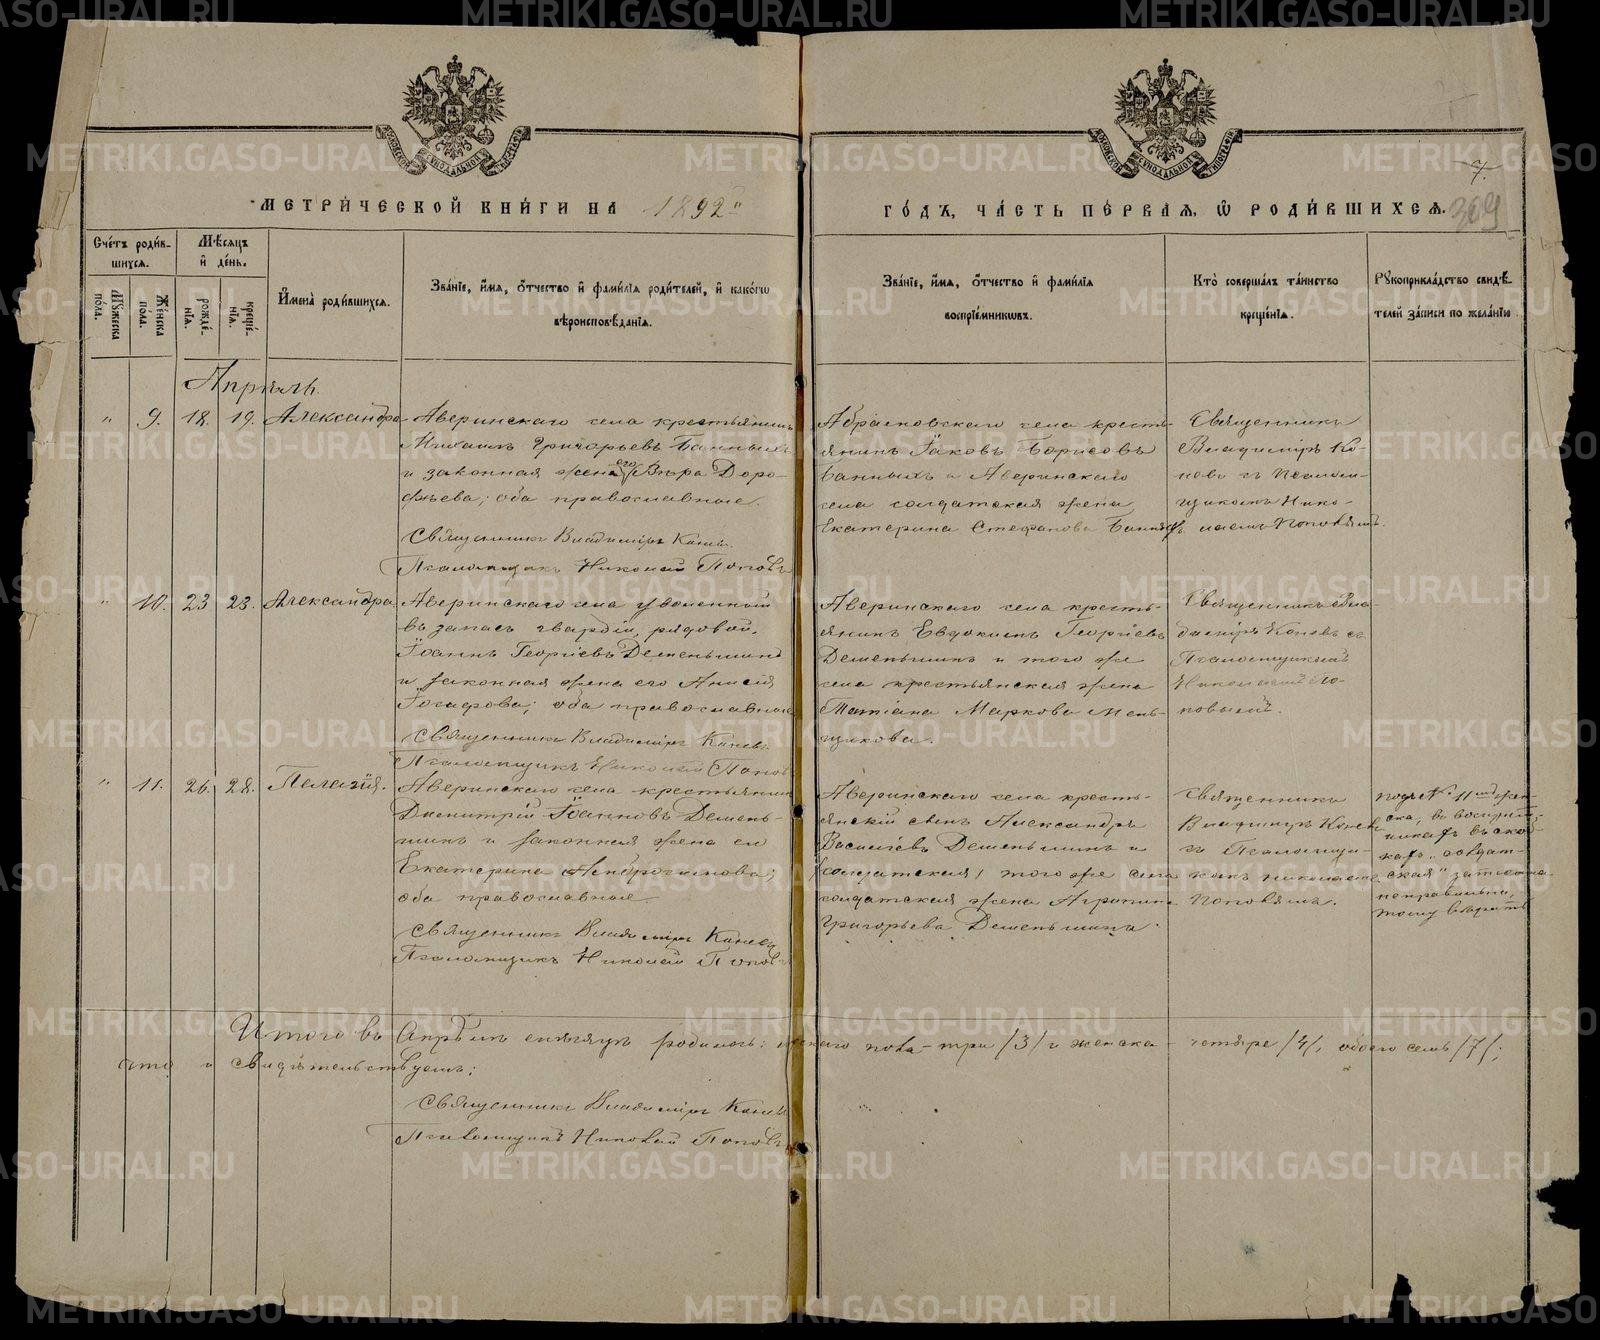 МЕТРИ́ЧЕСКОЙ КНИ́ГИ НА 1892й
ГО́ДЪ, ЧА́СТЬ ПЕ́РВАЯ, Ѿ РОДИ́ВШИХСЯ.
7.
369
Сче́тъ роди́в-
шихся.
Му́жеска по́ла.
Же́нска по́ла.
Мѣ́сяцъ
и҆ де́нь.
рожде́нїя.
креще́нїя.
И҆мена̀ роди́вшихся.
Зва́нїе, и҆́мя, ѻ҆́тчество и҆ фами́лїя роди́телей, и҆ како́гѡ
вѣроисповѣ́данїя.
Зва́нїе, и҆́мя, ѻ҆́тчество и҆ фами́лїя
воспрїе́мниковъ.
Кто̀ соверша́лъ та́инство
креще́нїя.
Рꙋкоприкла́дство свидѣ́-
телей за́писи по жела́нїю.
Апрѣль.
" 9. 18. 19. Александра
Аверинскаго села крестьянинъ
Михаилъ Григорьевъ Банныхъ
и законная жена его Вѣра Доро-
фѣева; оба православные.
Священникъ Владиміръ Каневъ.
Псаломщикъ Николай Поповъ
Абрамовскаго села кресть-
янинъ Іаковъ Борисовъ
Банныхъ и Аверинскаго
села солдатская жена
Екатерина Стефанова Банныхъ.
Священникъ
Владиміръ Ка-
невъ съ Псалом-
щикомъ Нико-
лаемъ Поповымъ.
" 10. 23 23. Александра.
Аверинскаго села уволенный
въ запасъ гвардіи, рядовой,
Іоаннъ Георгіевъ Деменьшинъ
и законная жена его Анисія
Іосафова; оба православные
Священникъ Владиміръ Каневъ.
Псаломщикъ Николай Поповъ
Аверинскаго села кресть-
янинъ Евдокимъ Георгіевъ
Деменьшинъ и того же
села крестьянская жена
Татіана Маркова Мень-
щикова.
Священникъ Вла-
диміръ Каневъ съ
Псаломщикомъ
Николаемъ По-
повымъ.
" 11. 26. 28. Пелагія.
Аверинскаго села крестьянинъ
Димитрій Іоанновъ Демень-
шинъ и законная жена его
Екатерина Андроникова;
оба православные
Священникъ Владиміръ Каневъ
Псаломщикъ Николай Поповъ
Аверинскаго села кресть-
янскій сынъ Александръ
Василіевъ Деменьшинъ и
/солдатская/ того же села
солдатская жена Агрипина
Григорьева Деменьшина.
Священникъ
Владиміръ Каневъ
съ Псаломщи-
комъ Николаемъ
Поповымъ.
подъ № 11мъ жен-
ска, въ воспріем-
никахъ въ скоб-
кахъ "солдат-
ская"
неправильно,
тому вѣрить
Итого въ Апрѣлѣ мѣсяцѣ родилось: мужскаго пола - три /3/ и женска - четыре /4/, обоего семь /7/;
что и свидѣтельствуемъ:
Священникъ Владиміръ Каневъ
Псаломщикъ Николай Поповъ
METRIKI.GASO-URAL.RU